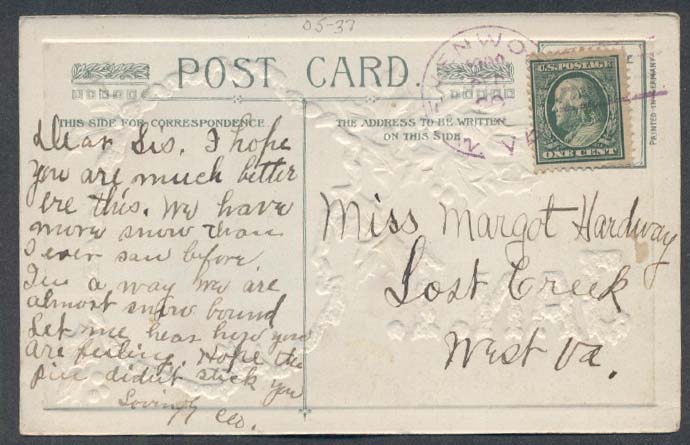 05-37
POST CARD.
THIS SIDE FOR CORRESPONDENCE
THE ADDRESS TO BE WRITTEN
ON THIS SIDE
PRINTED IN GERMANY
U.S. POSTAGE
ONE CENT
Dear Sis. I hope
you are much better
ere this. We have
more snow than
I ever saw before
In a way we are
almost snow bound
Let me hear how you
are feeling. Hope the
pin didn't stick you
Lovingly
Cleo.
Miss Margot Hardway
Lost Creek
West Va.